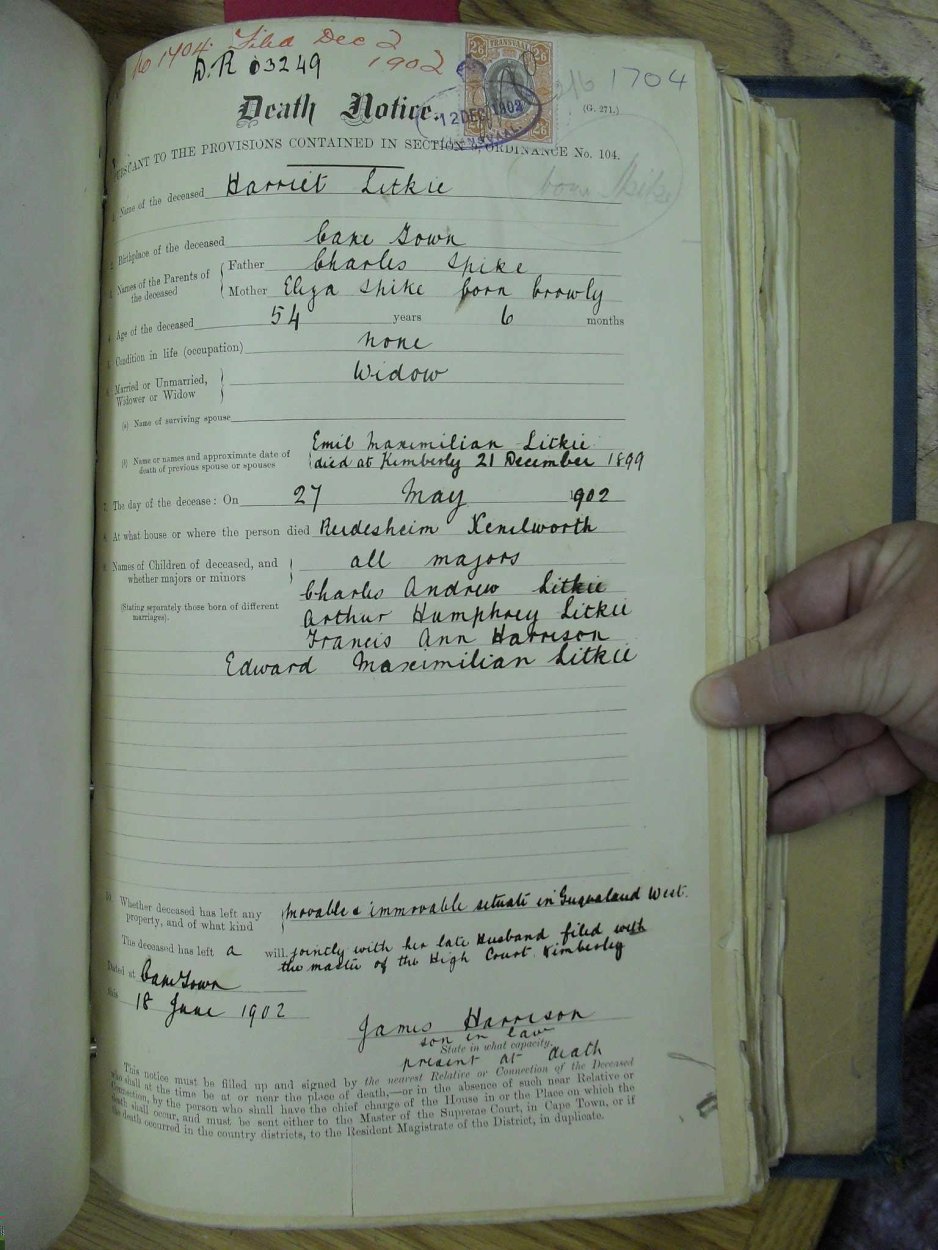 No 1704. Filed Dec 2
1902
D.R 03249
1704
TRANSVAAL
2/6 2/6
12 DEC 1902
Death Notice.
(G. 271.)
PURSUANT TO THE PROVISIONS CONTAINED IN SECTION 9, ORDINANCE No. 104.
born Spike
1. Name of the deceased Harriet Litkie
2. Birthplace of the deceased Cape Town
3. Names of the Parents of the deceased { Father Charles Spike
Mother Eliza Spike born Crowly
4. Age of the deceased 54 years 6 months
5. Condition in life (occupation) none
6. Married or Unmarried, Widower or Widow } Widow
(a) Name of surviving spouse
(b) Name or names and approximate date of death of previous spouse or spouses { Emil Maximilian Litkie
died at Kimberly 21 December 1899
7. The day of the decease: On 27 May 1902
8. At what house or where the person died Rudesheim Kenilworth
9. Names of Children of deceased, and whether majors or minors } all majors
(Stating separately those born of different marriages).
Charles Andrew Litkie
Arthur Humphrey Litkie
Francis Ann Harrison
Edward Maximilian Litkie
10. Whether deceased has left any property, and of what kind { movable & immovable situate in Griqualand West.
The deceased has left a will jointly with her late Husband filed with
the master of the High Court Kimberley
Dated at Cape Town
this 18 June 1902
James Harrison
son in law
State in what capacity.
present at death
This notice must be filled up and signed by the nearest Relative or Connection of the Deceased
who shall at the time be at or near the place of death,—or in the absence of such near Relative or
Connection, by the person who shall have the chief charge of the House in or the Place on which the
death shall occur, and must be sent either to the Master of the Supreme Court, in Cape Town, or if
the death occurred in the country districts, to the Resident Magistrate of the District, in duplicate.